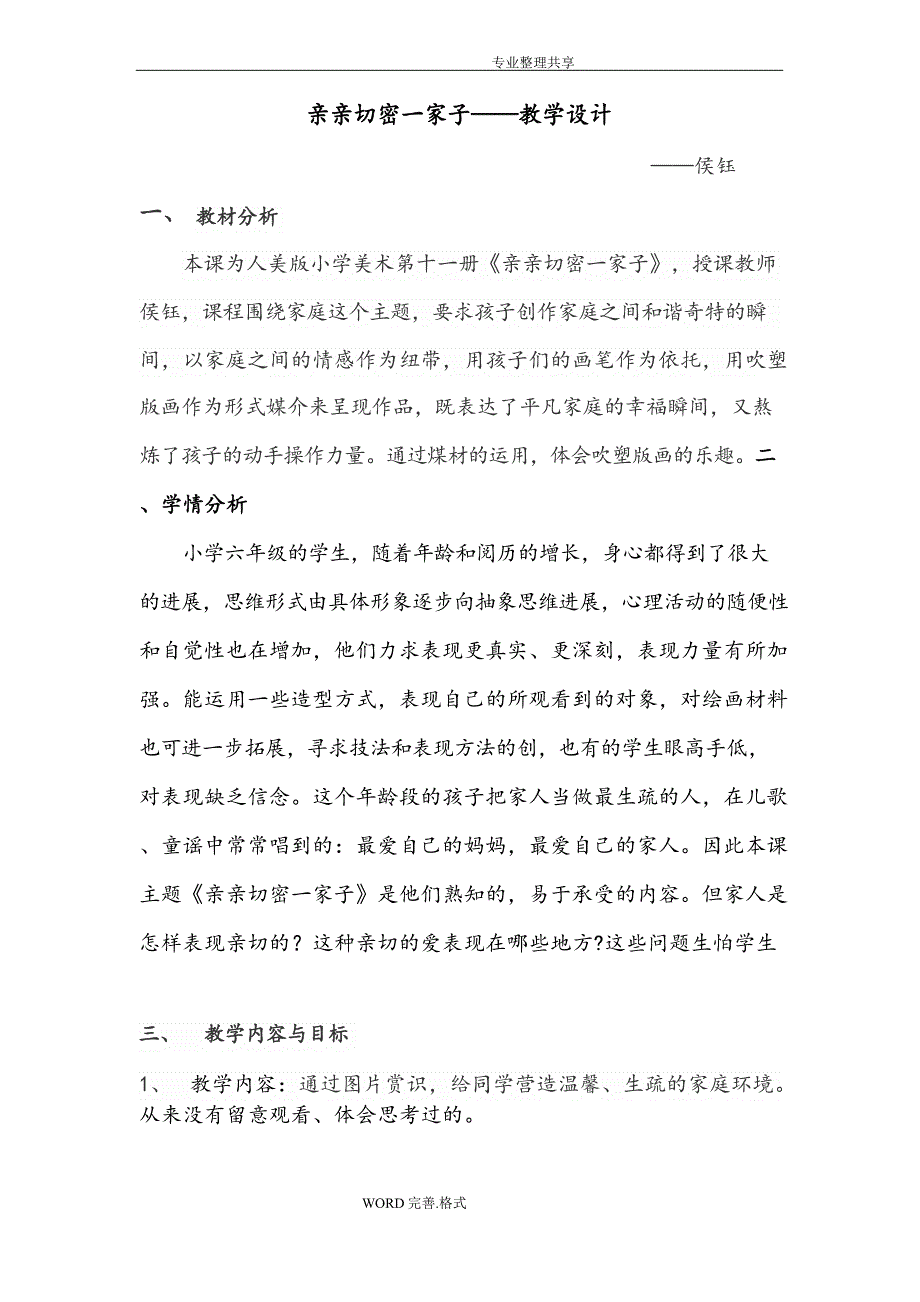 专业整理共享
亲亲切密一家子——教学设计
——侯钰
一、 教材分析
本课为人美版小学美术第十一册《亲亲切密一家子》，授课教师
侯钰，课程围绕家庭这个主题，要求孩子创作家庭之间和谐奇特的瞬
间，以家庭之间的情感作为纽带，用孩子们的画笔作为依托，用吹塑
版画作为形式媒介来呈现作品，既表达了平凡家庭的幸福瞬间，又熬
炼了孩子的动手操作力量。通过煤材的运用，体会吹塑版画的乐趣。二
、学情分析
小学六年级的学生，随着年龄和阅历的增长，身心都得到了很大
的进展，思维形式由具体形象逐步向抽象思维进展，心理活动的随便性
和自觉性也在增加，他们力求表现更真实、更深刻，表现力量有所加
强。能运用一些造型方式，表现自己的所观看到的对象，对绘画材料
也可进一步拓展，寻求技法和表现方法的创，也有的学生眼高手低，
对表现缺乏信念。这个年龄段的孩子把家人当做最生疏的人，在儿歌
、童谣中常常唱到的：最爱自己的妈妈，最爱自己的家人。因此本课
主题《亲亲切密一家子》是他们熟知的，易于承受的内容。但家人是
怎样表现亲切的？这种亲切的爱表现在哪些地方?这些问题生怕学生
三、 教学内容与目标
1、 教学内容：通过图片赏识，给同学营造温馨、生疏的家庭环境。
从来没有留意观看、体会思考过的。
WORD 完善.格式